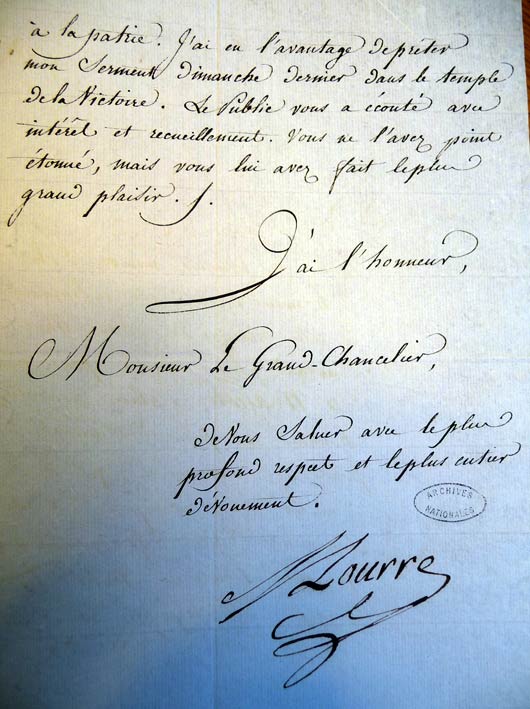 à la patrie. J'ai eu l'avantage de prêter
mon Serment dimanche dernier dans le temple
de la Victoire. Le Public vous a écouté avec
intérêt et recueillement. Vous ne l'avez point
étonné, mais vous lui avez fait le plus
grand plaisir. /.
J'ai l'honneur,
Monsieur Le Grand-Chancelier,
de Vous Saluer avec le plus
profond respect et le plus entier
dévouement.
ARCHIVES
NATIONALES
Mourre